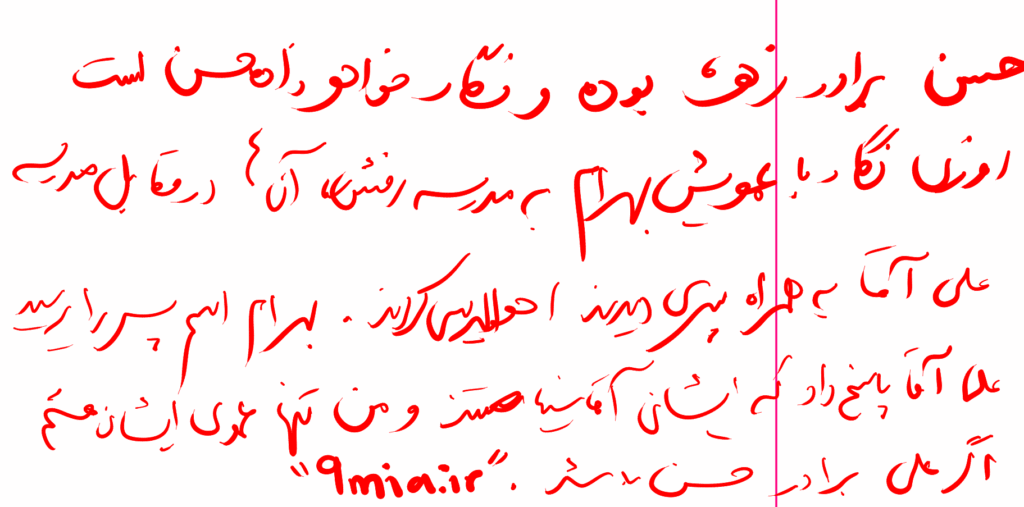 حسن برادر زهره بوده و نگار خواهرزاده حسن است
روزی نگار با عمویش بهرام به مدرسه رفتند، آنها در مقابل مدرسه
علی آقا به همراه پسری دیدند احوالپرسی کردند. بهرام اسم پسر را پرسید
علی آقا پاسخ داد که ایشان آقا سینا هستند و من تنها عموی ایشان هستم
اگر علی برادر حسن باشد. "9mia.ir"